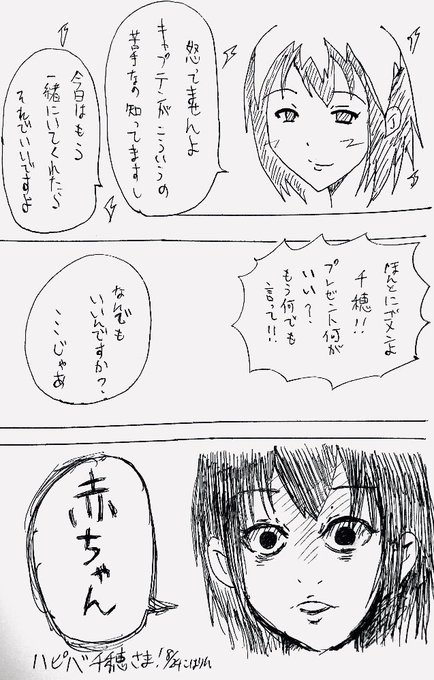 怒ってませんよ
キャプテンがこういうの
苦手なの知ってますし
今日はもう
一緒にいてくれたら
それでいいですよ
ほんとにゴメンよ
千穂!!
プレゼント何が
いい?
もう何でも
言って!!
なんでも
いいんですか?
ここじゃあ
赤ちゃん
ハピバ千穂さま!